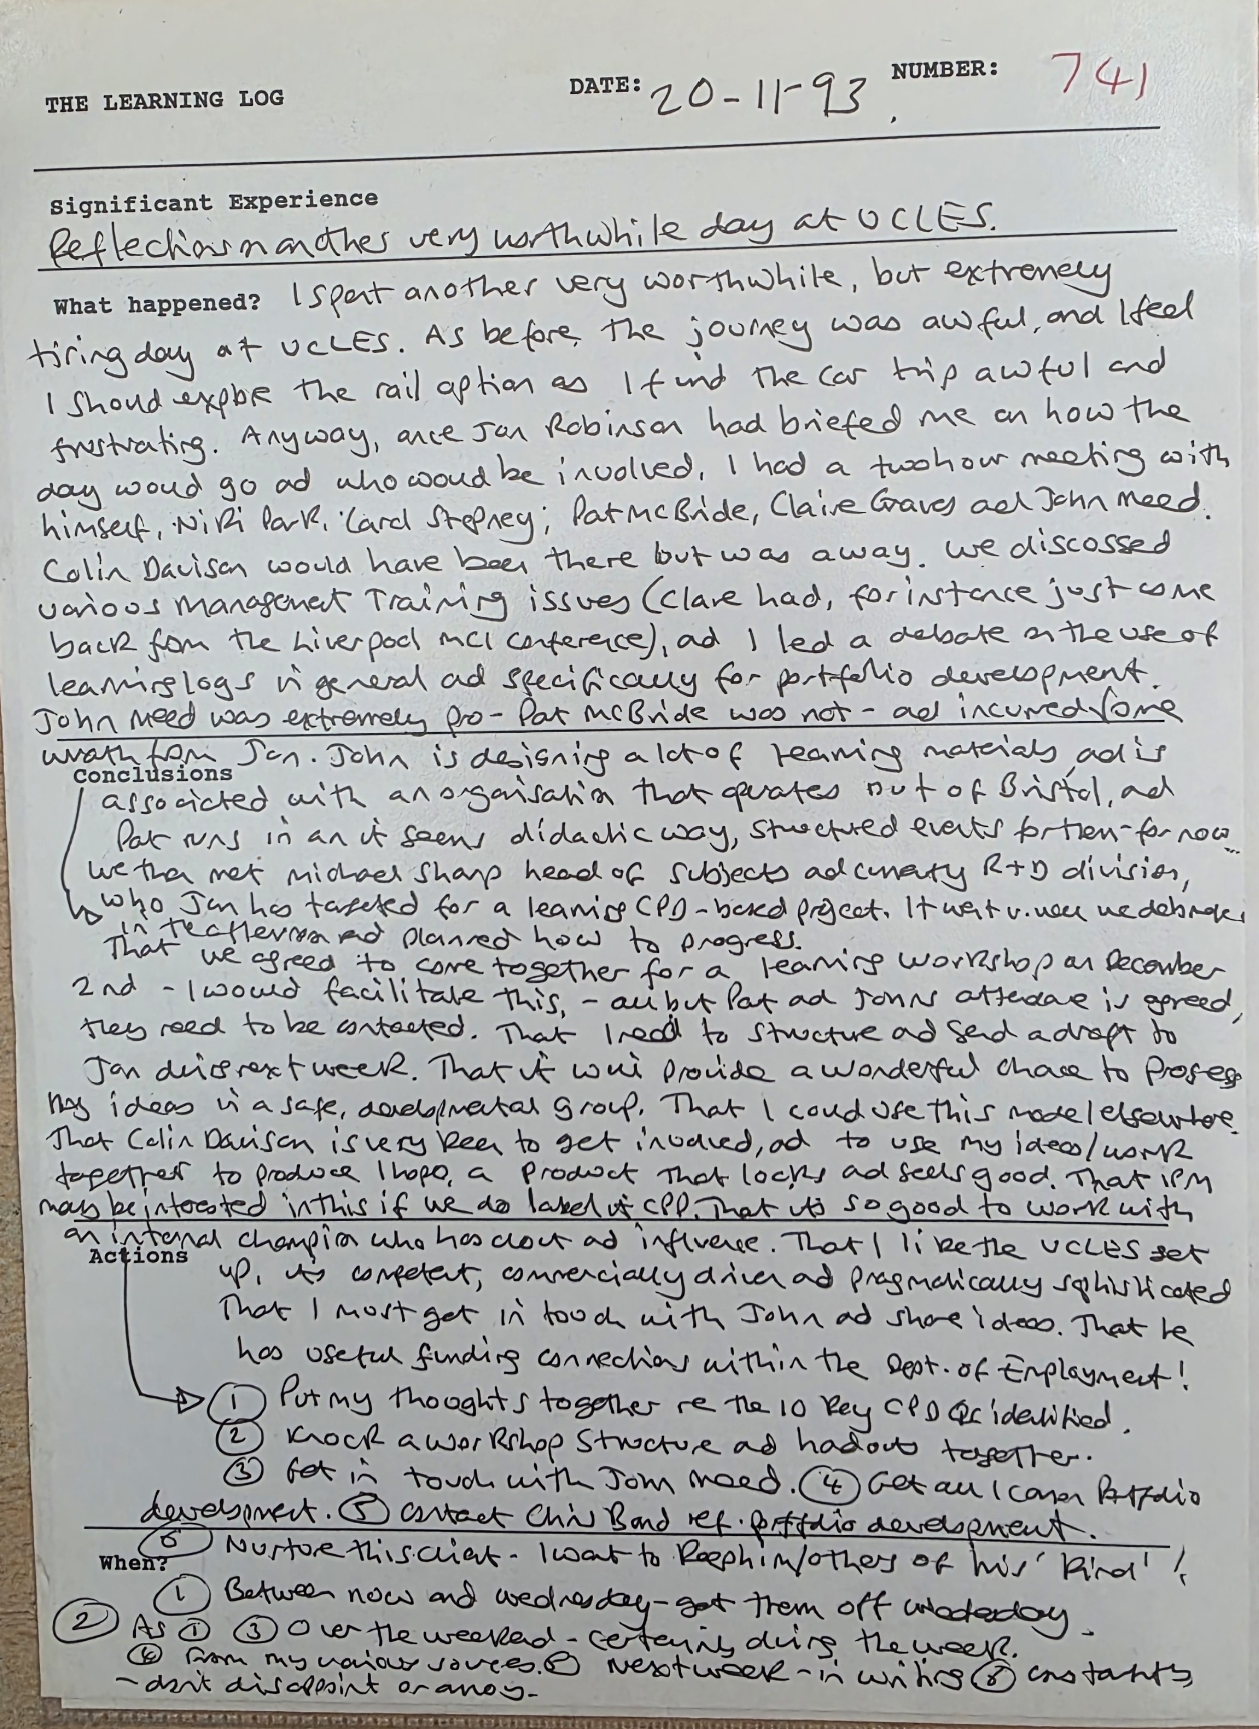 THE LEARNING LOG DATE: 20-11-93 NUMBER: 741
Significant Experience
Reflections on another very worthwhile day at UCLES.
What happened? I spent another very worthwhile, but extremely
tiring day at UCLES. As before, the journey was awful, and I feel
I should explore the rail option as I find the car trip awful and
frustrating. Anyway, once Jon Robinson had briefed me on how the
day would go ad who would be involved, I had a two hour meeting with
himself, Niki Park, Carol Stepney; Pat McBride, Claire Graves ad John Meed.
Colin Davison would have been there but was away. We discossed
various Management Training issues (Clare had, for instance just come
back from the Liverpool MCI conference), ad I led a debate on the use of
learning logs in general ad specifically for portfolio development.
John Meed was extremely pro - Pat McBride was not - ad incurred some
wrath from Jon. John is designing a lot of learning materials, ad is
Conclusions
associated with an organisation that operates out of Bristol, ad
Pat runs in an it seems didactic way, structured events for them - for now...
We then met Michael Sharp head of subjects ad currently R+D division,
who Jon has targeted for a learning CPD-based project. It went v. well we debriefed
in the afternoon ad planned how to progress.
That we agreed to come together for a learning workshop on December
2nd - I would facilitate this, - all but Pat ad Johns attendance is agreed,
they need to be contacted. That I need to structure ad send a draft to
Jon during next week. That it will provide a wonderful chance to progress
my ideas in a safe, developmental group. That I could use this model elsewhere.
That Colin Davison is very keen to get involved, ad to use my ideas/work
together to produce I hope, a product that looks ad feels good. That IPM
may be interested in this if we do label it CPD. That it's so good to work with
an internal champion who has clout ad influence. That I like the UCLES set
Actions
up, it's competent, commercially driven ad pragmatically sophisticated
That I must get in touch with John ad share ideas. That he
has useful funding connections within the Dept. of Employment!
① Put my thoughts together re the 10 key CPD Qs identified.
② Knock a workshop structure ad hadouts together.
③ Get in touch with John Meed. ④ Get all I can on Portfolio
development. ⑤ Contact Chris Bond ref. portfolio development.
⑥ Nurture this client - I want to keep him/others of his 'kind'!
When?
① Between now and wednesday - get them off wednesday.
② As ① ③ Over the weekend - certainly during the week.
④ From my various sources. ⑤ Next week - in writing ⑥ constantly
- don't disappoint or annoy -